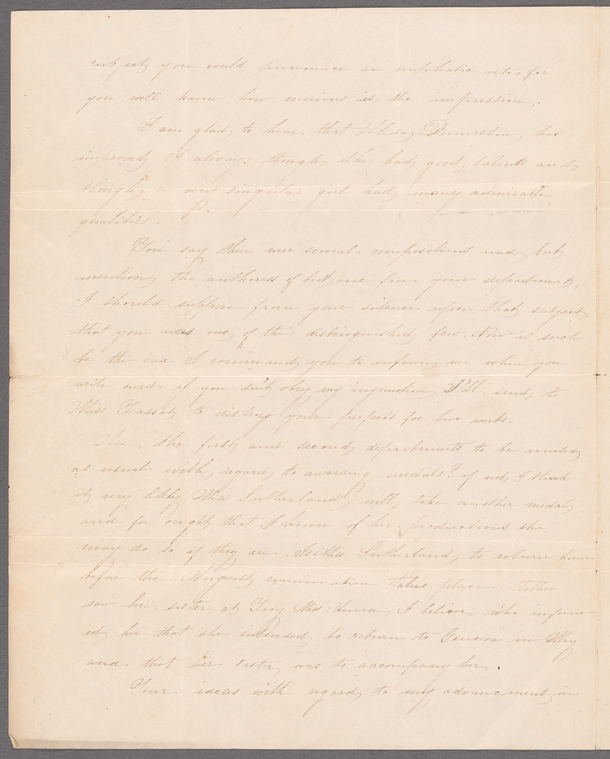 subject you could pronounce an emphatic veto, for
you well know how erroneous is the impression.
I am glad to hear that Denniston has
improved I always thought she had good talents and,
though a very singular girl had many admirable
qualities.
You say there were several compositions read but
mention the authoress of but one from your department,
I should suppose from your silence upon that subject
that you was one of the distinguished few. Now if such
be the case I command you to inform me when you
write and if you don't obey my injunction I'll send to
Miss to your for two weeks.
Are the first and second departments to be united
as usual with regard to awarding medals? if not I think
it very likely Miss Sutherland will take another medal,
and for ought that I know of her productions she
may do so if they are. Is Miss Sutherland to return home
before the August examination takes place. Mother
saw her sister at Troy Miss I believe who inform-
ed her that she intended to return to Geneva in May
and that her sister was to accompany her.
Your ideas with regard to my advancement in